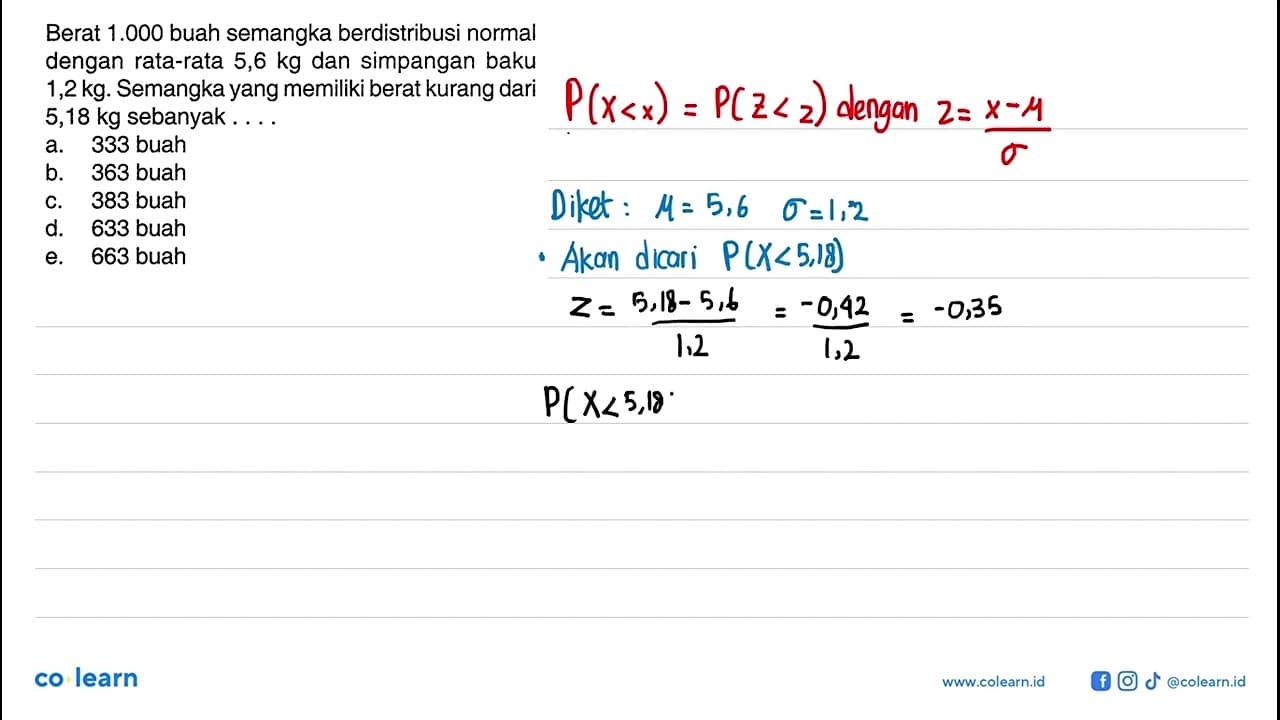 Berat 1.000 buah semangka berdistribusi normal
dengan rata-rata 5,6 kg dan simpangan baku
1,2 kg. Semangka yang memiliki berat kurang dari
5,18 kg sebanyak . . . .
a. 333 buah
b. 363 buah
c. 383 buah
d. 633 buah
e. 663 buah
P(X<x) = P(Z<z) dengan z = x-μ / σ
Diket : μ = 5,6 σ = 1,2
• Akan dicari P(X<5,18)
Z = 5,18 - 5,6 / 1,2 = -0,42 / 1,2 = -0,35
P(X<5,18
co learn
www.colearn.id
@colearn.id